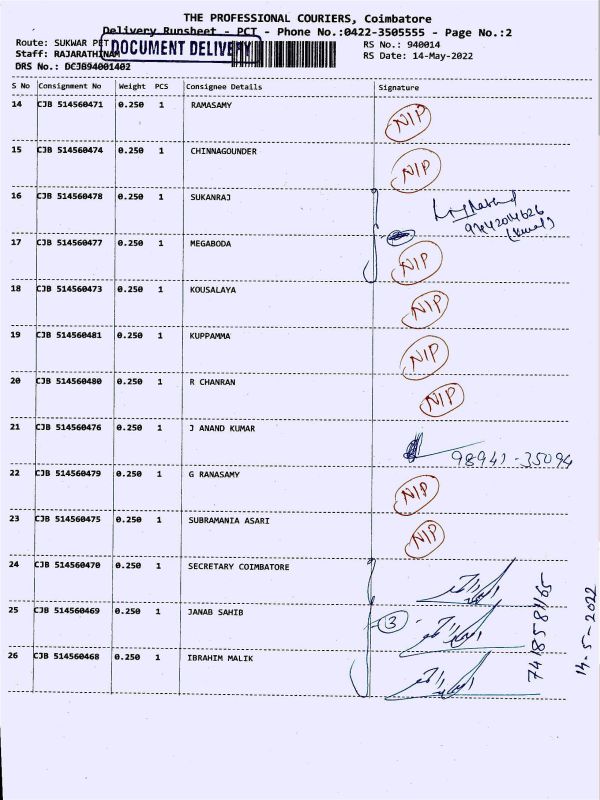 THE PROFESSIONAL COURIERS, Coimbatore
Delivery Runsheet - PCT - Phone No.:0422-3505555 - Page No.:2
Route: SUKWAR PET
DOCUMENT DELIVERY
RS No.: 940014
Staff: RAJARATHINAM
RS Date: 14-May-2022
DRS No.: DCJB94001402
S No Consignment No Weight PCS Consignee Details Signature
14 CJB 514560471 0.250 1 RAMASAMY N/P
15 CJB 514560474 0.250 1 CHINNAGOUNDER N/P
16 CJB 514560478 0.250 1 SUKANRAJ
17 CJB 514560477 0.250 1 MEGABODA N/P
18 CJB 514560473 0.250 1 KOUSALAYA N/P
19 CJB 514560481 0.250 1 KUPPAMMA N/P
20 CJB 514560480 0.250 1 R CHANRAN N/P
21 CJB 514560476 0.250 1 J ANAND KUMAR 98941-35094
22 CJB 514560479 0.250 1 G RANASAMY N/P
23 CJB 514560475 0.250 1 SUBRAMANIA ASARI N/P
24 CJB 514560470 0.250 1 SECRETARY COIMBATORE
25 CJB 514560469 0.250 1 JANAB SAHIB 3
26 CJB 514560468 0.250 1 IBRAHIM MALIK
7418581165
14-5-2022